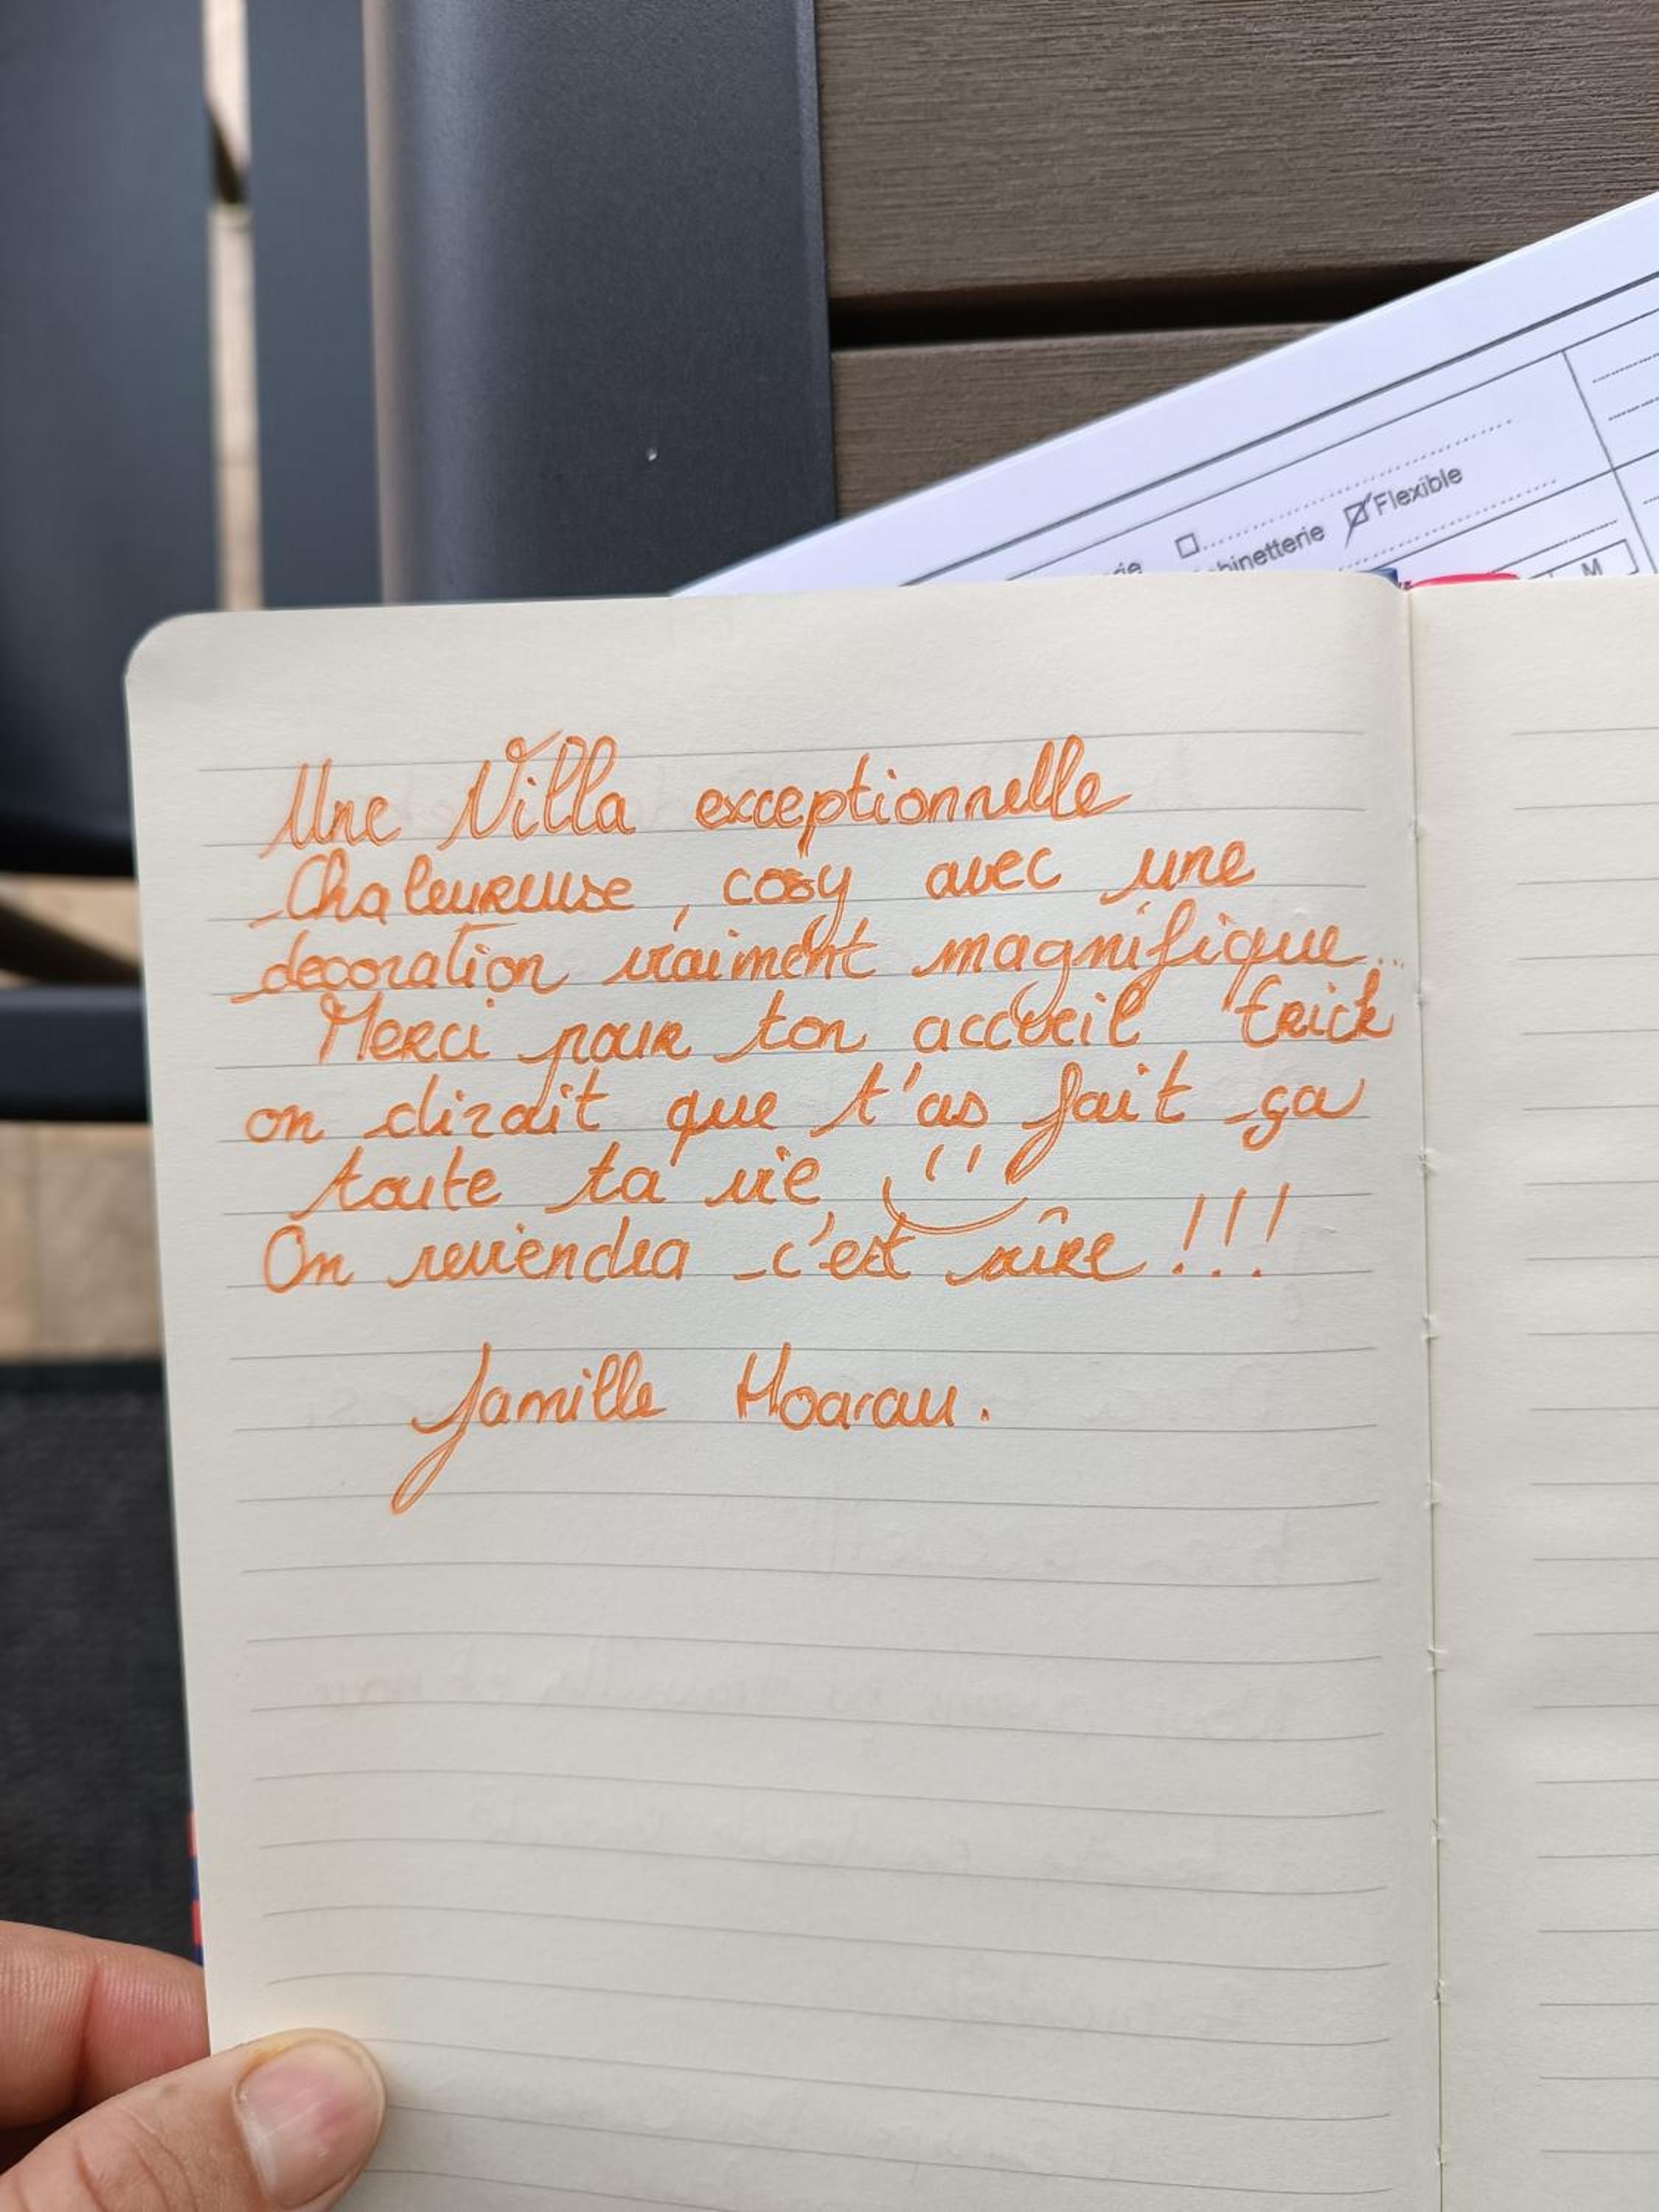 rie ☐ ..........
binetterie ☑ Flexible
M
Une Villa exceptionnelle
Chaleureuse, cosy avec une
decoration vraiment magnifique..
Merci pour ton accueil Erick
on dirait que t'as fait ça
toute ta vie
On reviendra c'est sûre !!!
famille Hoarau.